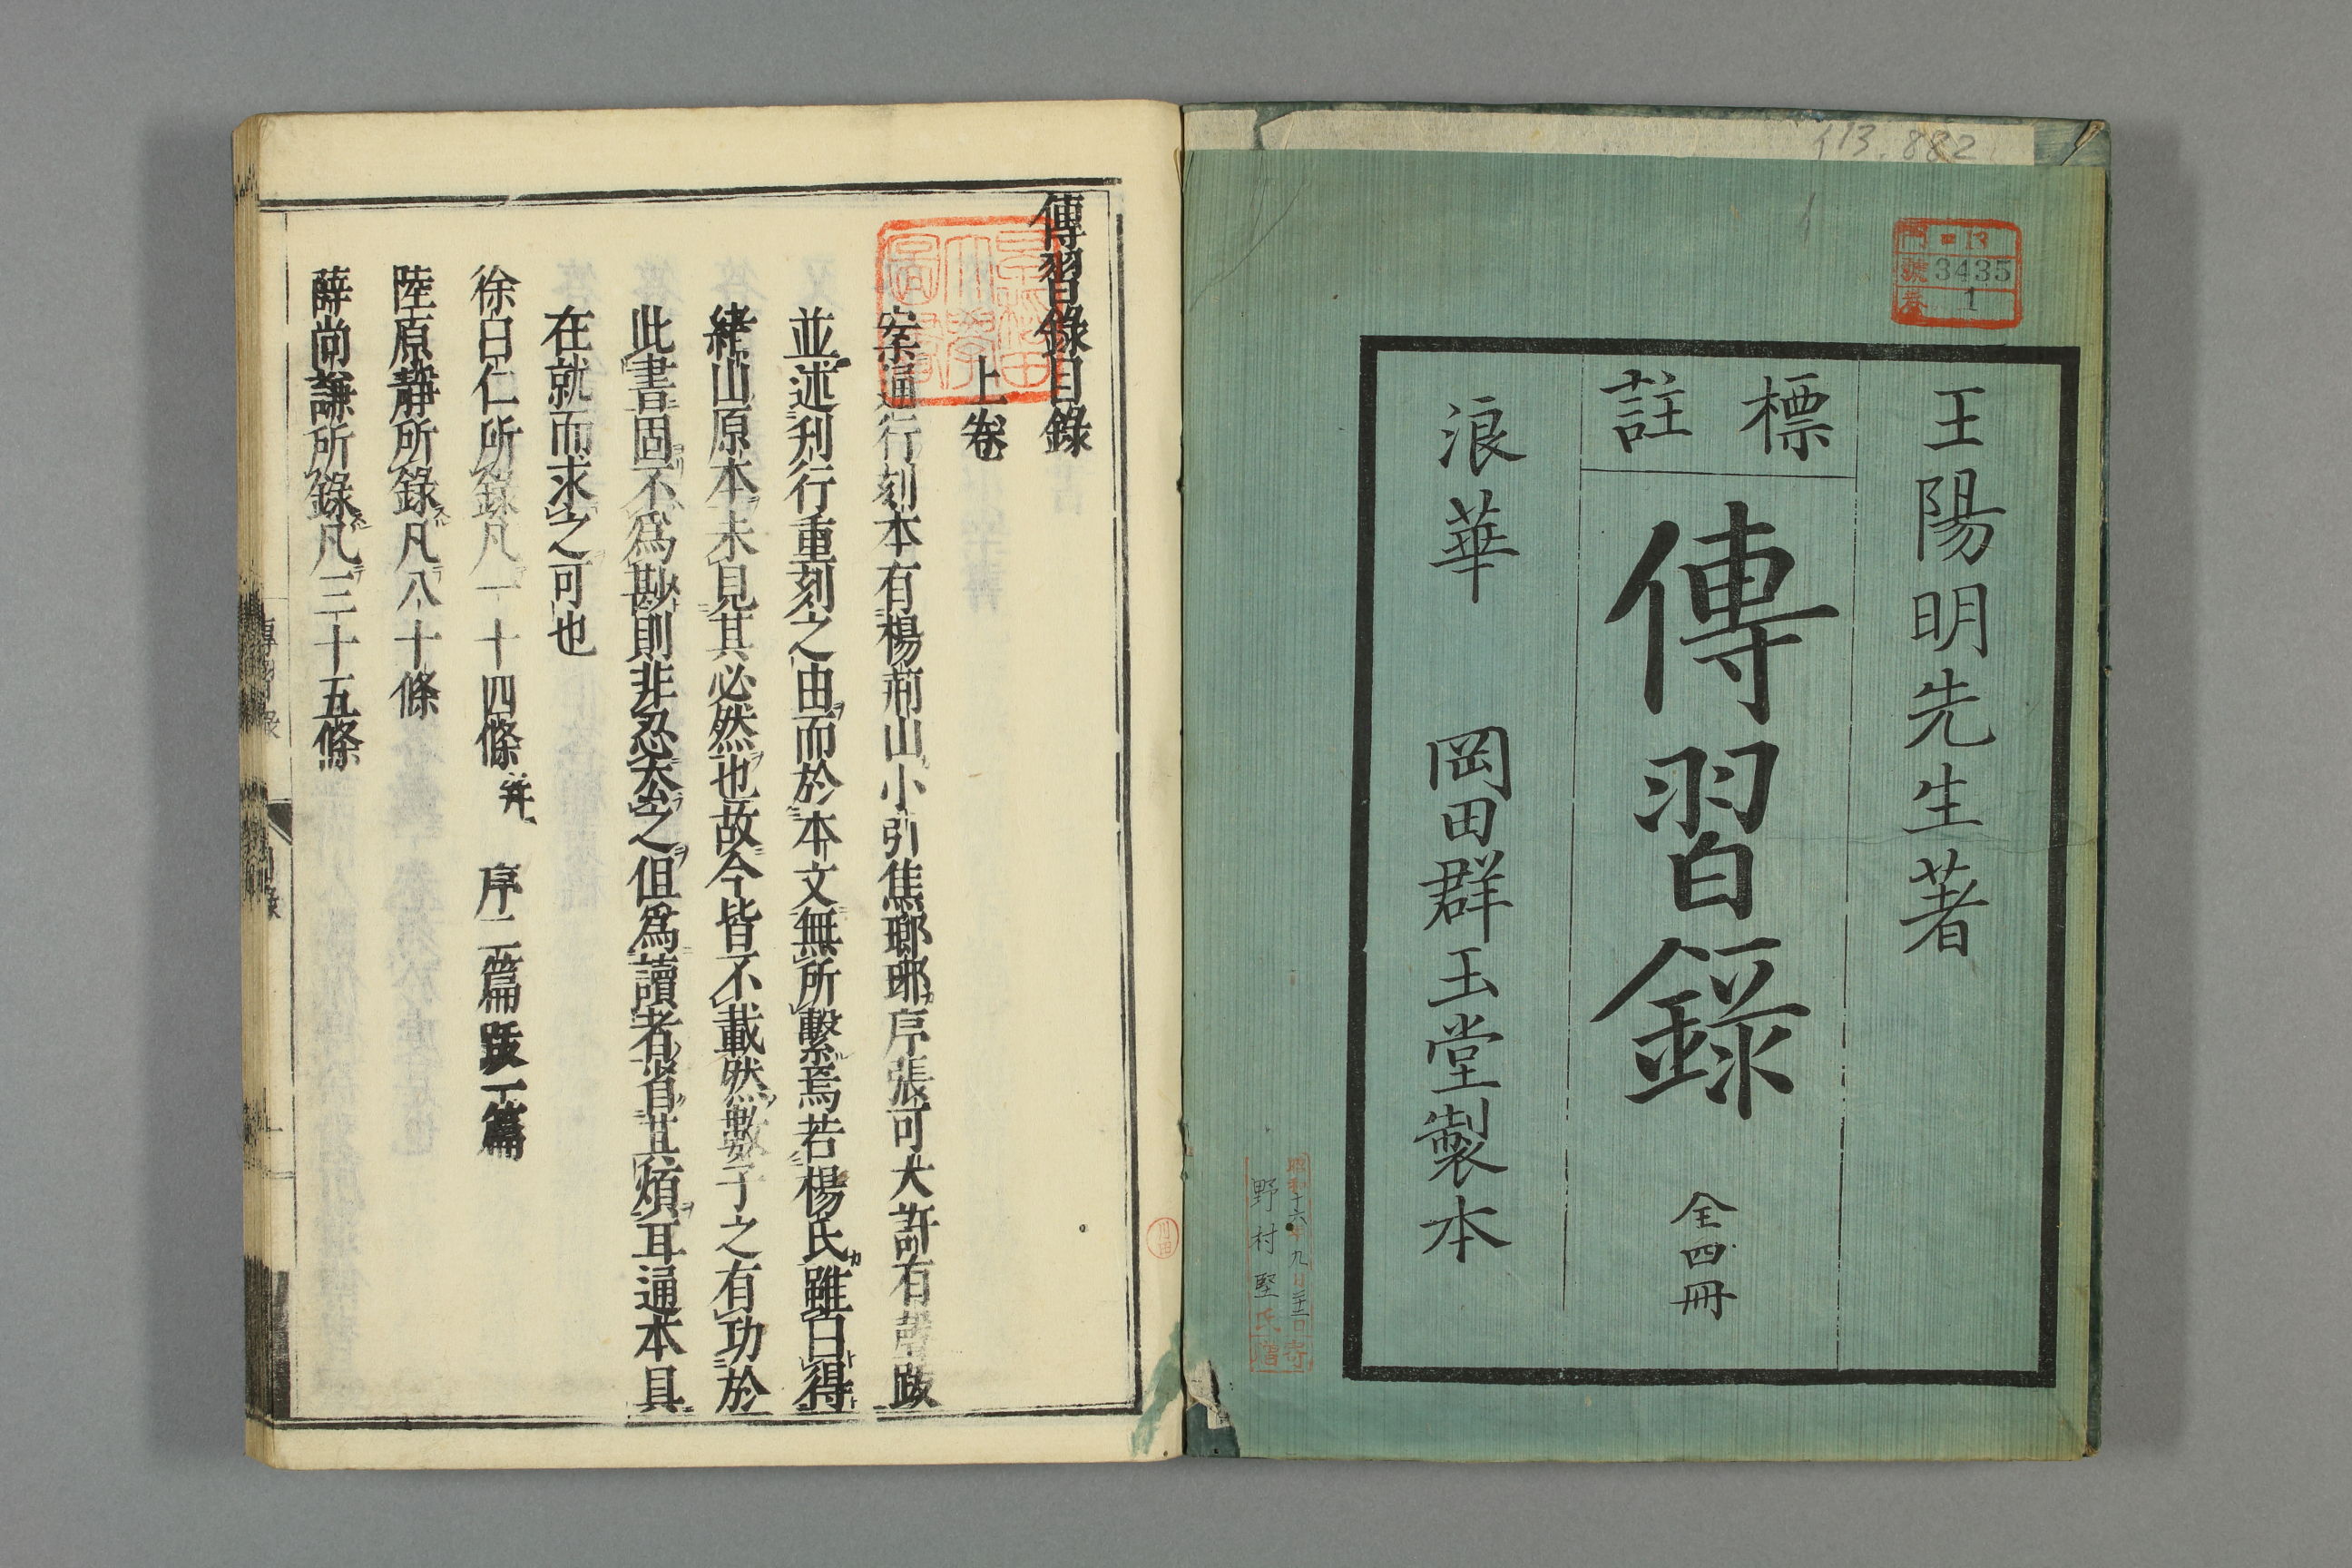 113.882
門 13
號 3435
卷 1
王陽明先生著
標註
傳習錄
全四冊
浪華 岡田群玉堂製本
昭和十六年九月二十二日寄
野村堅氏贈
傳習錄目錄
上卷
案通行刻本有楊荊山小引焦瑯琊序張可大許有聲跋
並述刊行重刻之由而於本文無所繫焉若楊氏雖曰得
緒山原本未見其必然也故今皆不載然數子之有功於
此書固不爲尠則非忍太公之但爲讀者省其煩耳通本具
在就而求之可也
徐曰仁所錄凡一十四條 并 序二篇跋一篇
陸原靜所錄凡八十條
薛尚謙所錄凡三十五條
傳習錄
目錄
一